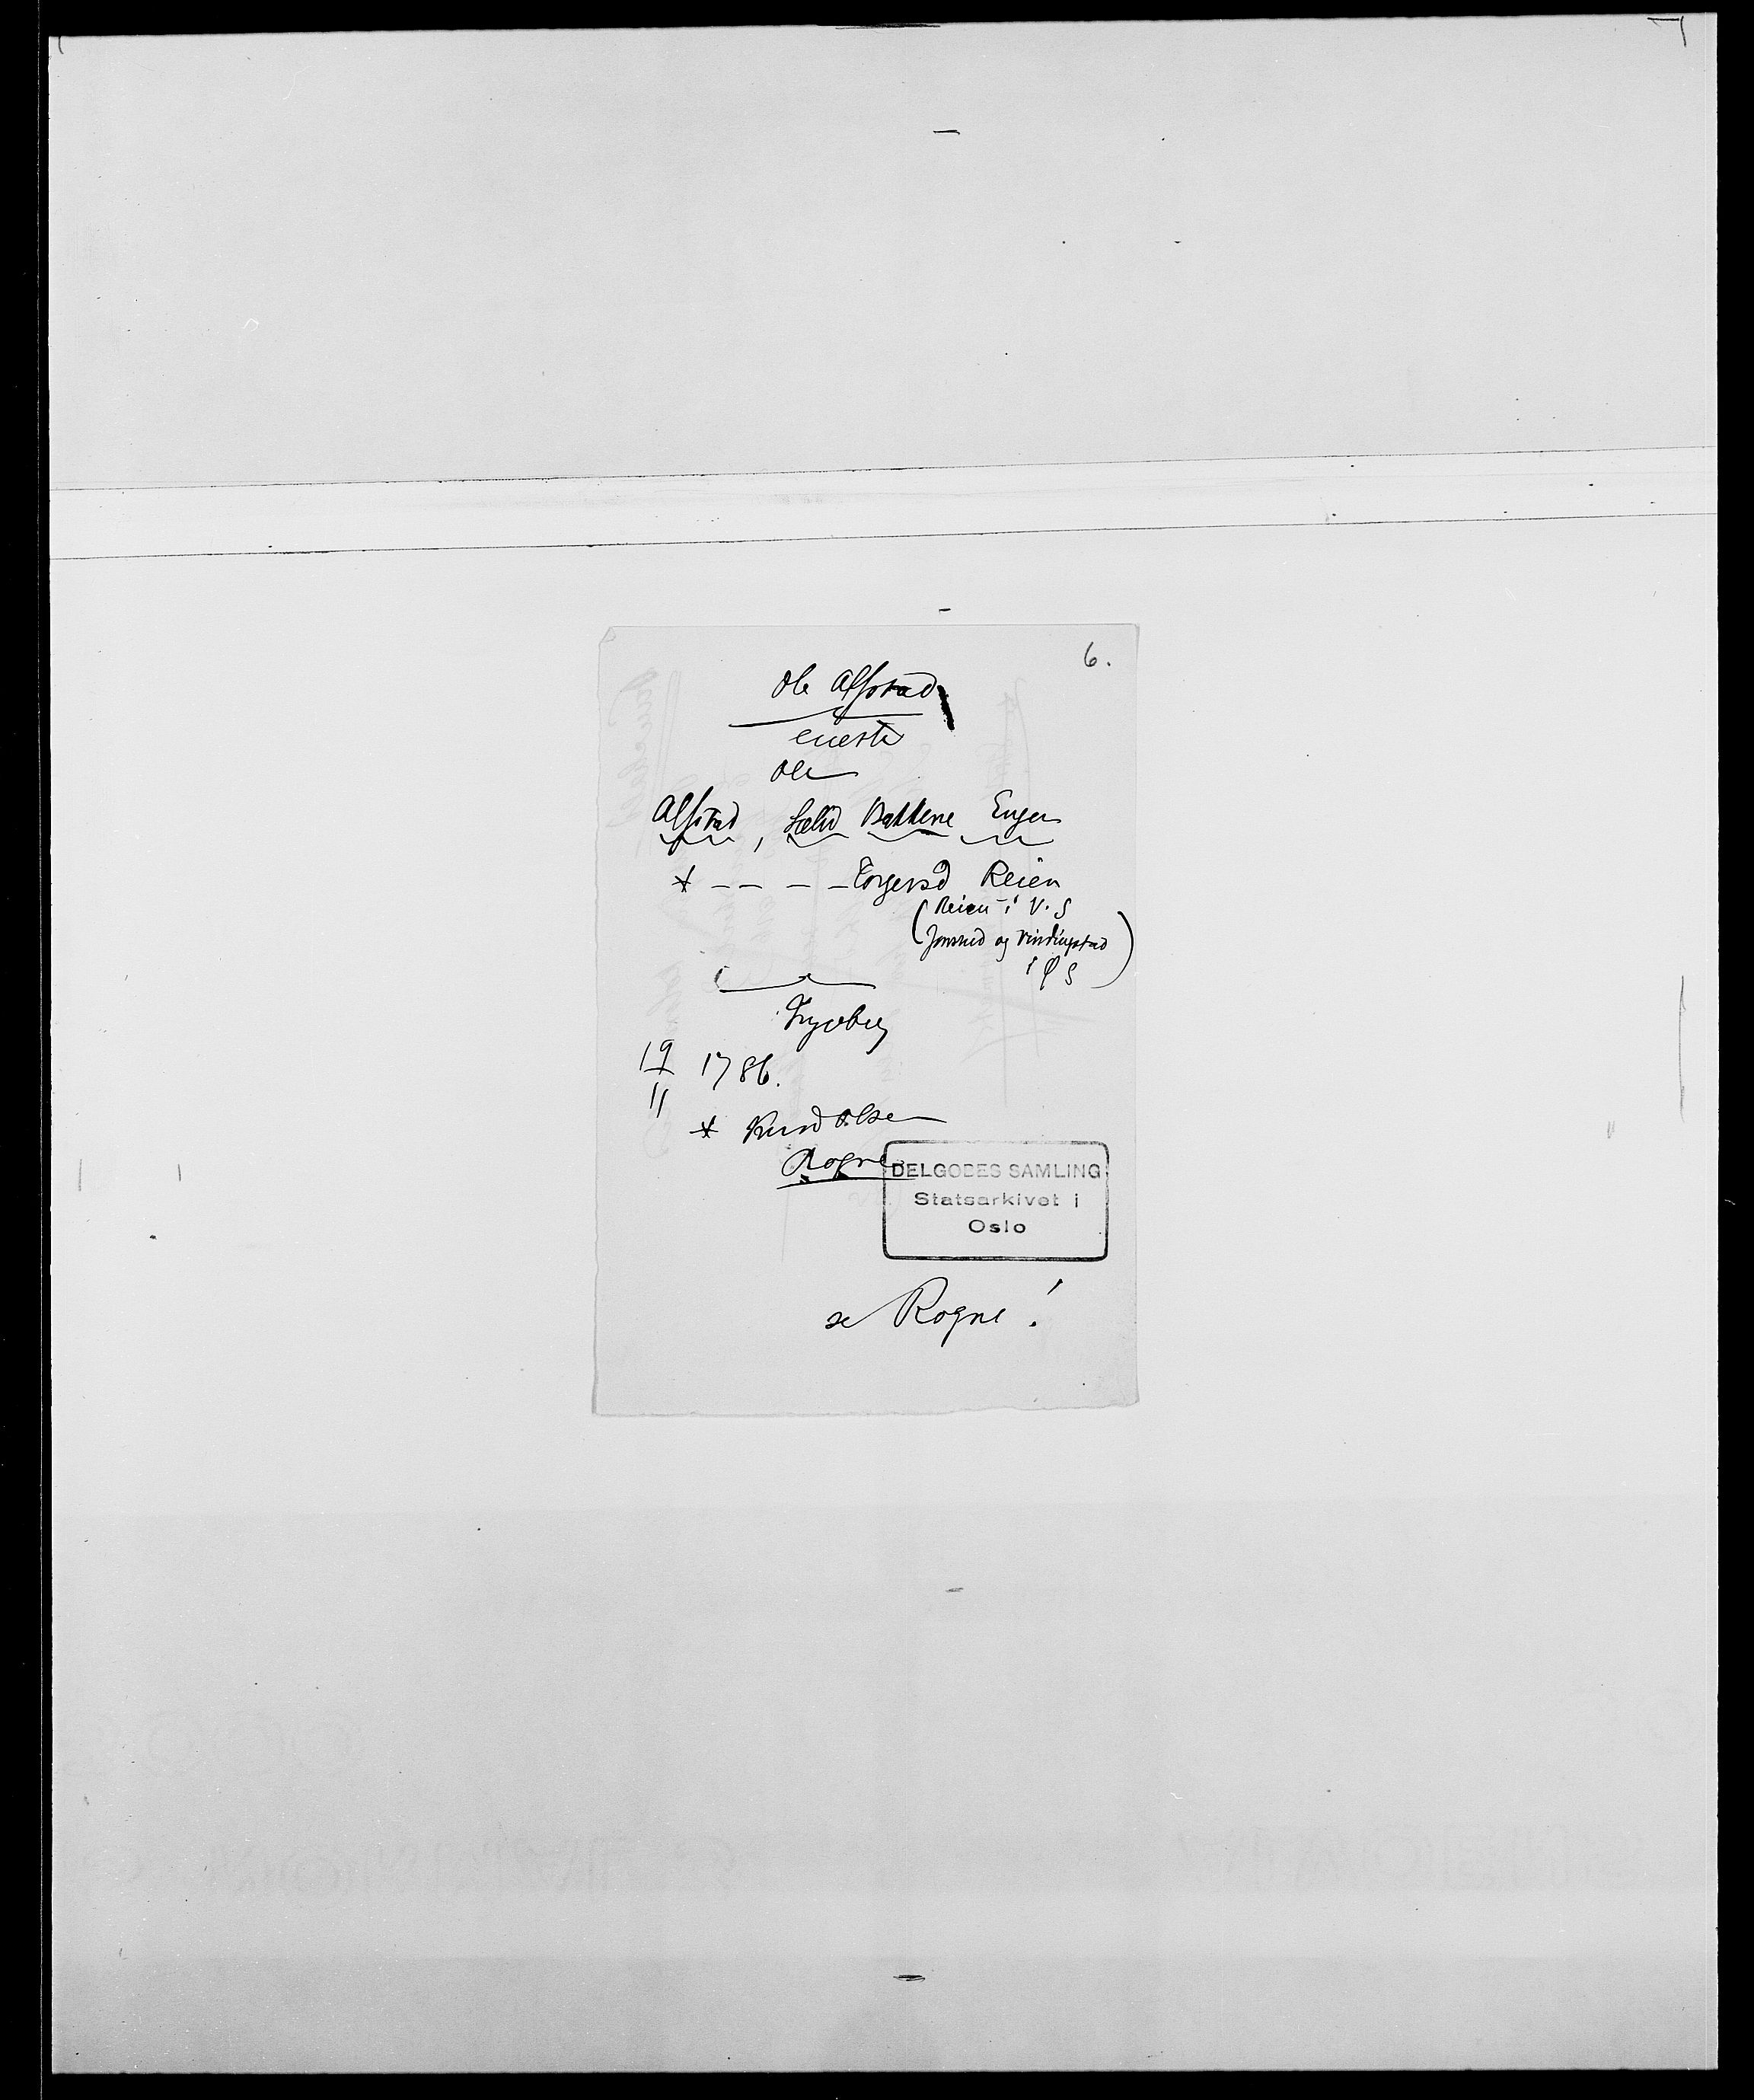 6.
Ole Alfstad
eneste
Ole
Alfstad, Sælid Bakkene Enger
* - - - - Torgersd Reien
(Reien i V. S
Jomsrud og Vindingstad
i Ø S)
Ingebrg
19/11 1786.
* Knud Olsen
Rogne
DELGOBES SAMLING
Statsarkivet i
Oslo
se Rogne!